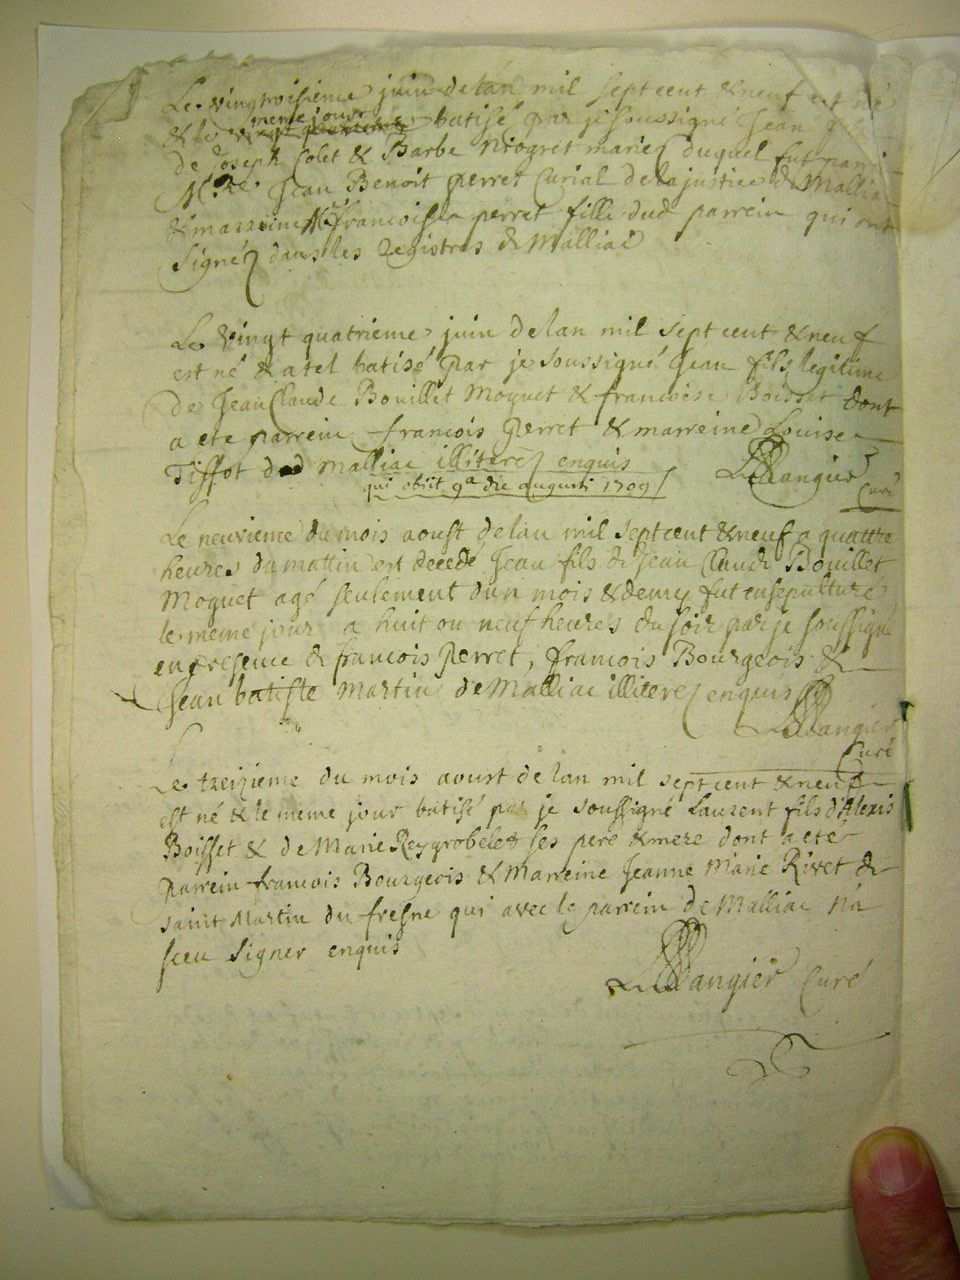 Le vingtroisieme juin de lan mil sept cent & neuf est né
& le meme jour batisé par je soussigné Jean fils
de Joseph Colet & Barbe Niogret mariez duquel fut parrein
Mtre Jean Benoit perret Curial de la justice de Malliac
& marreine francoise perret fille dud parrein qui ont
signéz dans les Registres de Malliac
Le vingt quatrieme juin de lan mil sept cent & neuf
est né & a tel batisé par je soussigné Jean fils legitime
de Jean Claude Bouillet Moguet & francoise Boisset dont
a eté parrein francois Perret & marreine Louise
Tissot dud malliac illiterez enquis
qui obiit 9a die augusti 1709
LBangier
Curé
Le neuvieme du mois aoust de lan mil sept cent & neuf a quattre
heures du mattin est decedé Jean fils de Jean Claude Bouillet
Moguet agé seulement dun mois & demy fut ensepulturé
le meme jour a huit ou neuf heures du soir par je soussigné
en presence de francois Perret, francois Bourgeois &
Jean batiste Martin de Malliac illiterez enquis
LBangier
Curé
Le treizieme du mois aoust de lan mil sept cent & neuf
est né & le meme jour batisé par je soussigné Laurent fils d'Alexis
Boisset & de Marie Reygrobelet ses pere & mere dont a eté
parrein francois Bourgeois & Marreine Jeanne Marie Rivet de
saint Martin du fresne qui avec le parrein de Malliac na
sceu signer enquis
LBangier Curé